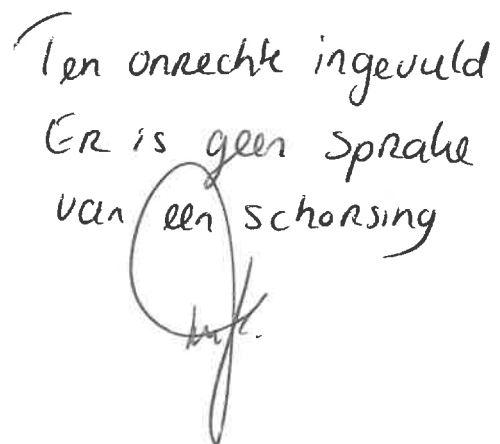 Ten onrechte ingevuld
Er is geen sprake
van een schorsing